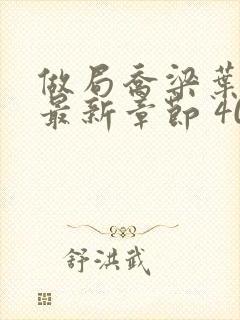 做局乔梁葉
最新章節 40
舒洪武